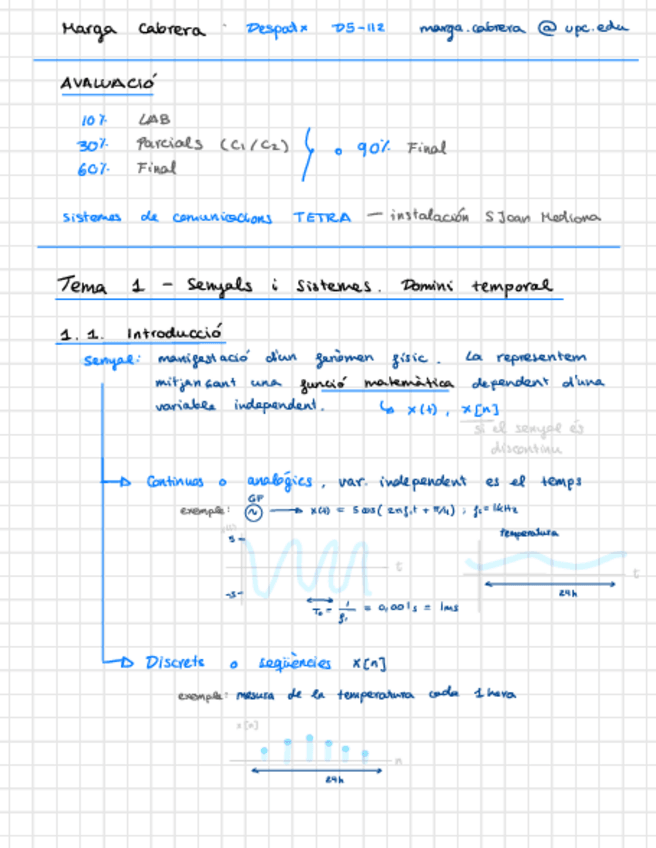 Marga Cabrera · Despatx D5-112 marga.cabrera @ upc.edu
AVALUACIÓ
10% LAB
30% Parcials (C1/C2)
60% Final
o 90% Final
sistemes de comunicacions TETRA — instalación S Joan Mediona
Tema 1 - Senyals i Sistemes. Domini temporal
1.1. Introducció
Senyal: manifestació d'un fenòmen físic. La representem
mitjançant una funció matemàtica dependent d'una
variable independent. ↳ x(t), x[n]
si el senyal és
discontinu
Continuos o analògics, var. independent es el temps
exemple: GF ~ → x(t) = 5 cos(2πf₁t + π/4); f₁=1kHz
temperatura
5
t
t
-5
24h
T₀ = 1/f₁ = 0,001s = 1ms
Discrets o seqüències x[n]
exemple: mesura de la temperatura cada 1 hora
x[n]
n
24h